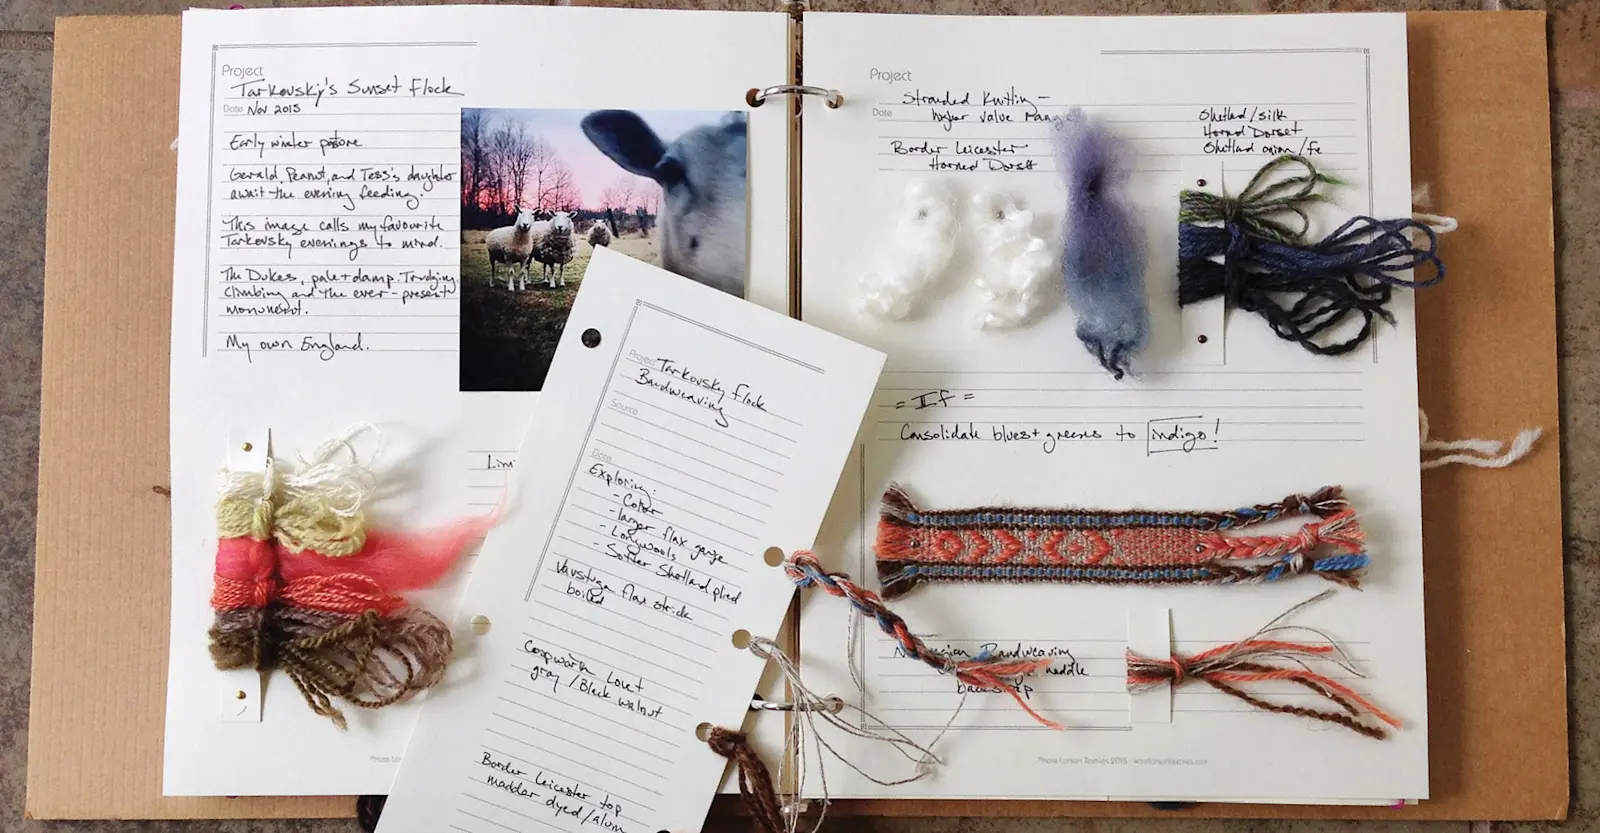 Project
Tarkovsky's Sunset Flock
Date Nov 2015
Early winter pasture
Gerald, Peanut, and Tess's daughter
await the evening feeding.
This image calls my favourite
Tarkovsky evenings to mind.
The Dukes, pale + damp. Trudging,
climbing and the ever-present
monument.
My own England.
Limi
Project
Tarkovsky Flock
Bandweaving
Source
Date
Exploring:
- Color
- larger flax gauge
- Longwools
- Softer Shetland plied
Vavstuga flax strick
boiled
Coopworth Lovet
gray / Black walnut
Border Leicester top
madder dyed / alum
Project
Stranded Knitting -
Date
higher value range
Border Leicester
Horned Dorset
Shetland / silk
Horned Dorset
Shetland onion / fe
= If =
Consolidate blues + greens to indigo!
Bandweaving
needle
backstrap
Larsen Textiles 2015